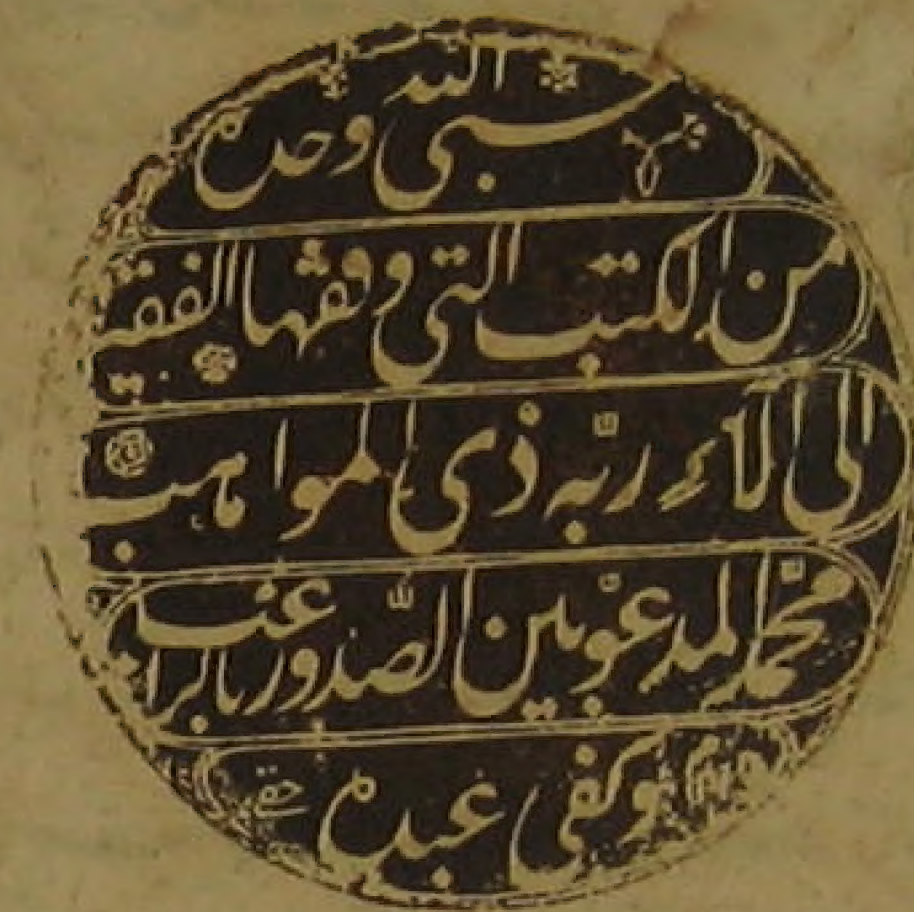 حسبى الله وحده
من الكتب التى وقفها الفقير
الى آلاء ربّه ذى المواهب
محمد المدعو بين الصّدور بالراغب
وكفى عبده